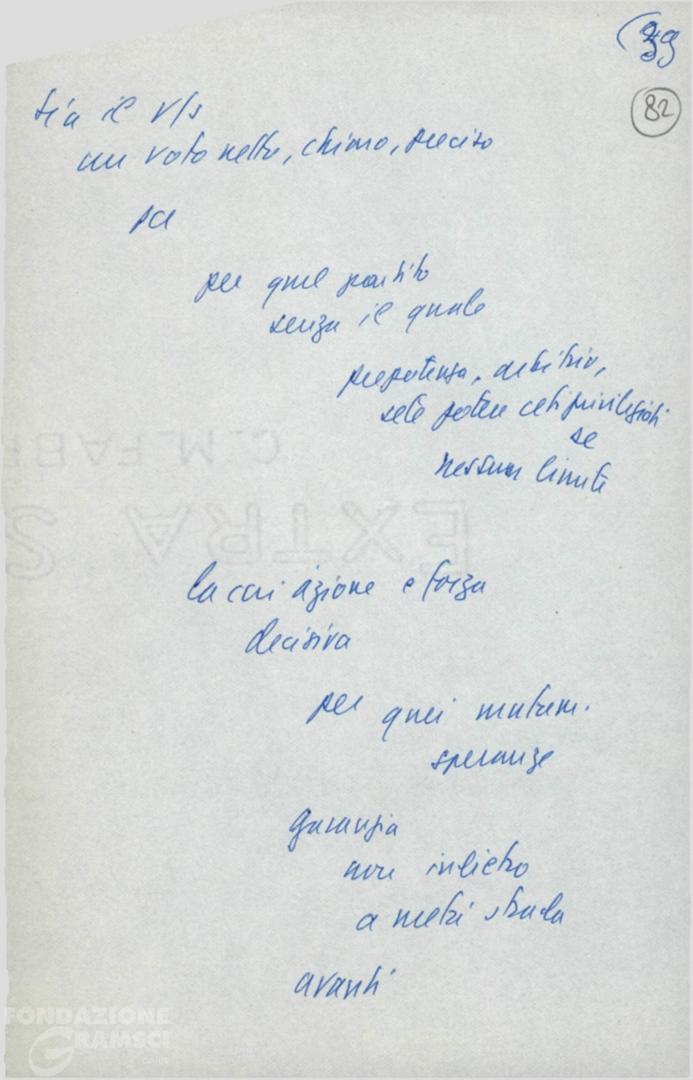 39
82
sia il v/s
un voto netto, chiaro, preciso
per quel partito
senza il quale
prepotenza, arbitrio,
sete potere ceti privilegiati
se
nessun limite
C.M.FABR
EXTRA S
la cui azione e forza
decisiva
per quei mutam.
speranze
garanzia
non indietro
a metà strada
avanti
FONDAZIONE
GRAMSCI